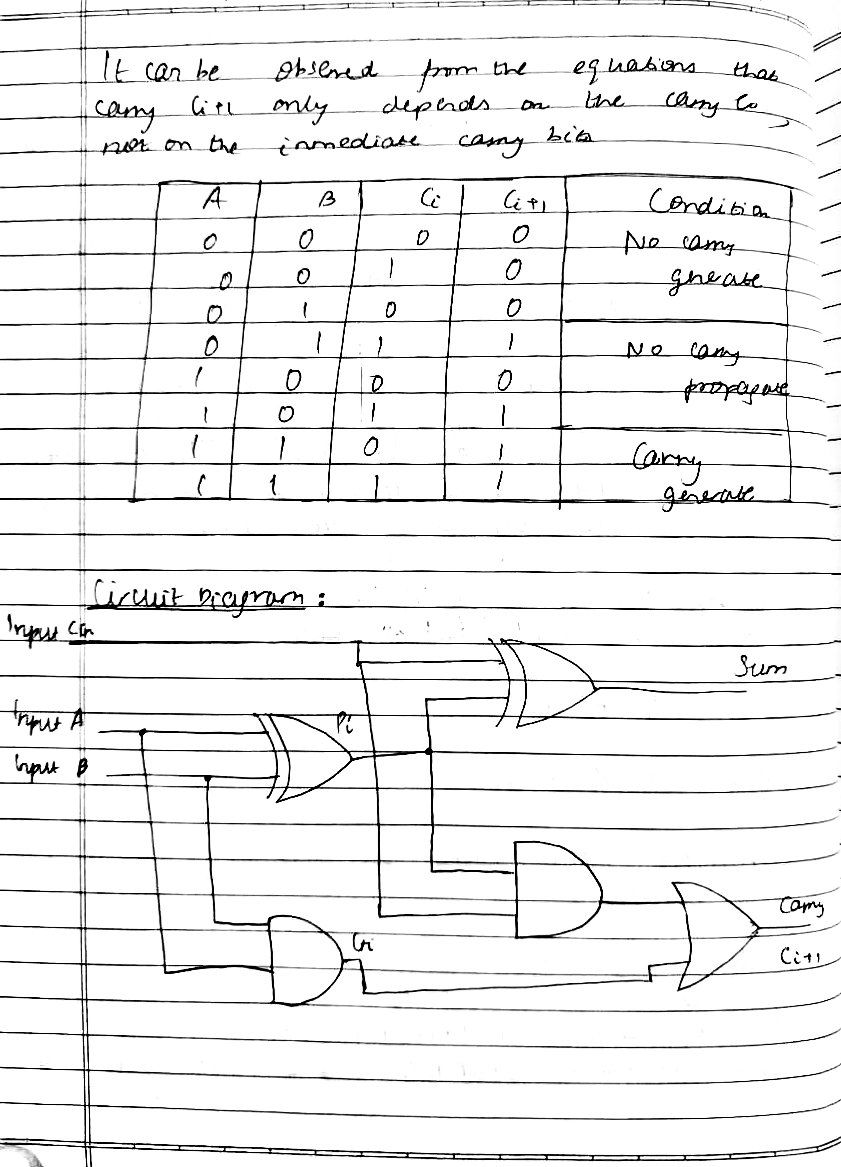 It can be observed from the equations that
carry Ci+1 only depends on the carry Co,
not on the immediate carry bits
A B Ci Ci+1 Condition
0 0 0 0 No carry
0 0 1 0 generate
0 1 0 0
0 1 1 1 No carry
1 0 0 0 propagate
1 0 1 1
1 1 0 1 Carry
1 1 1 1 generate
Circuit Diagram :
Input Cin
Sum
Input A
Pi
Input B
Carry
Gi
Ci+1